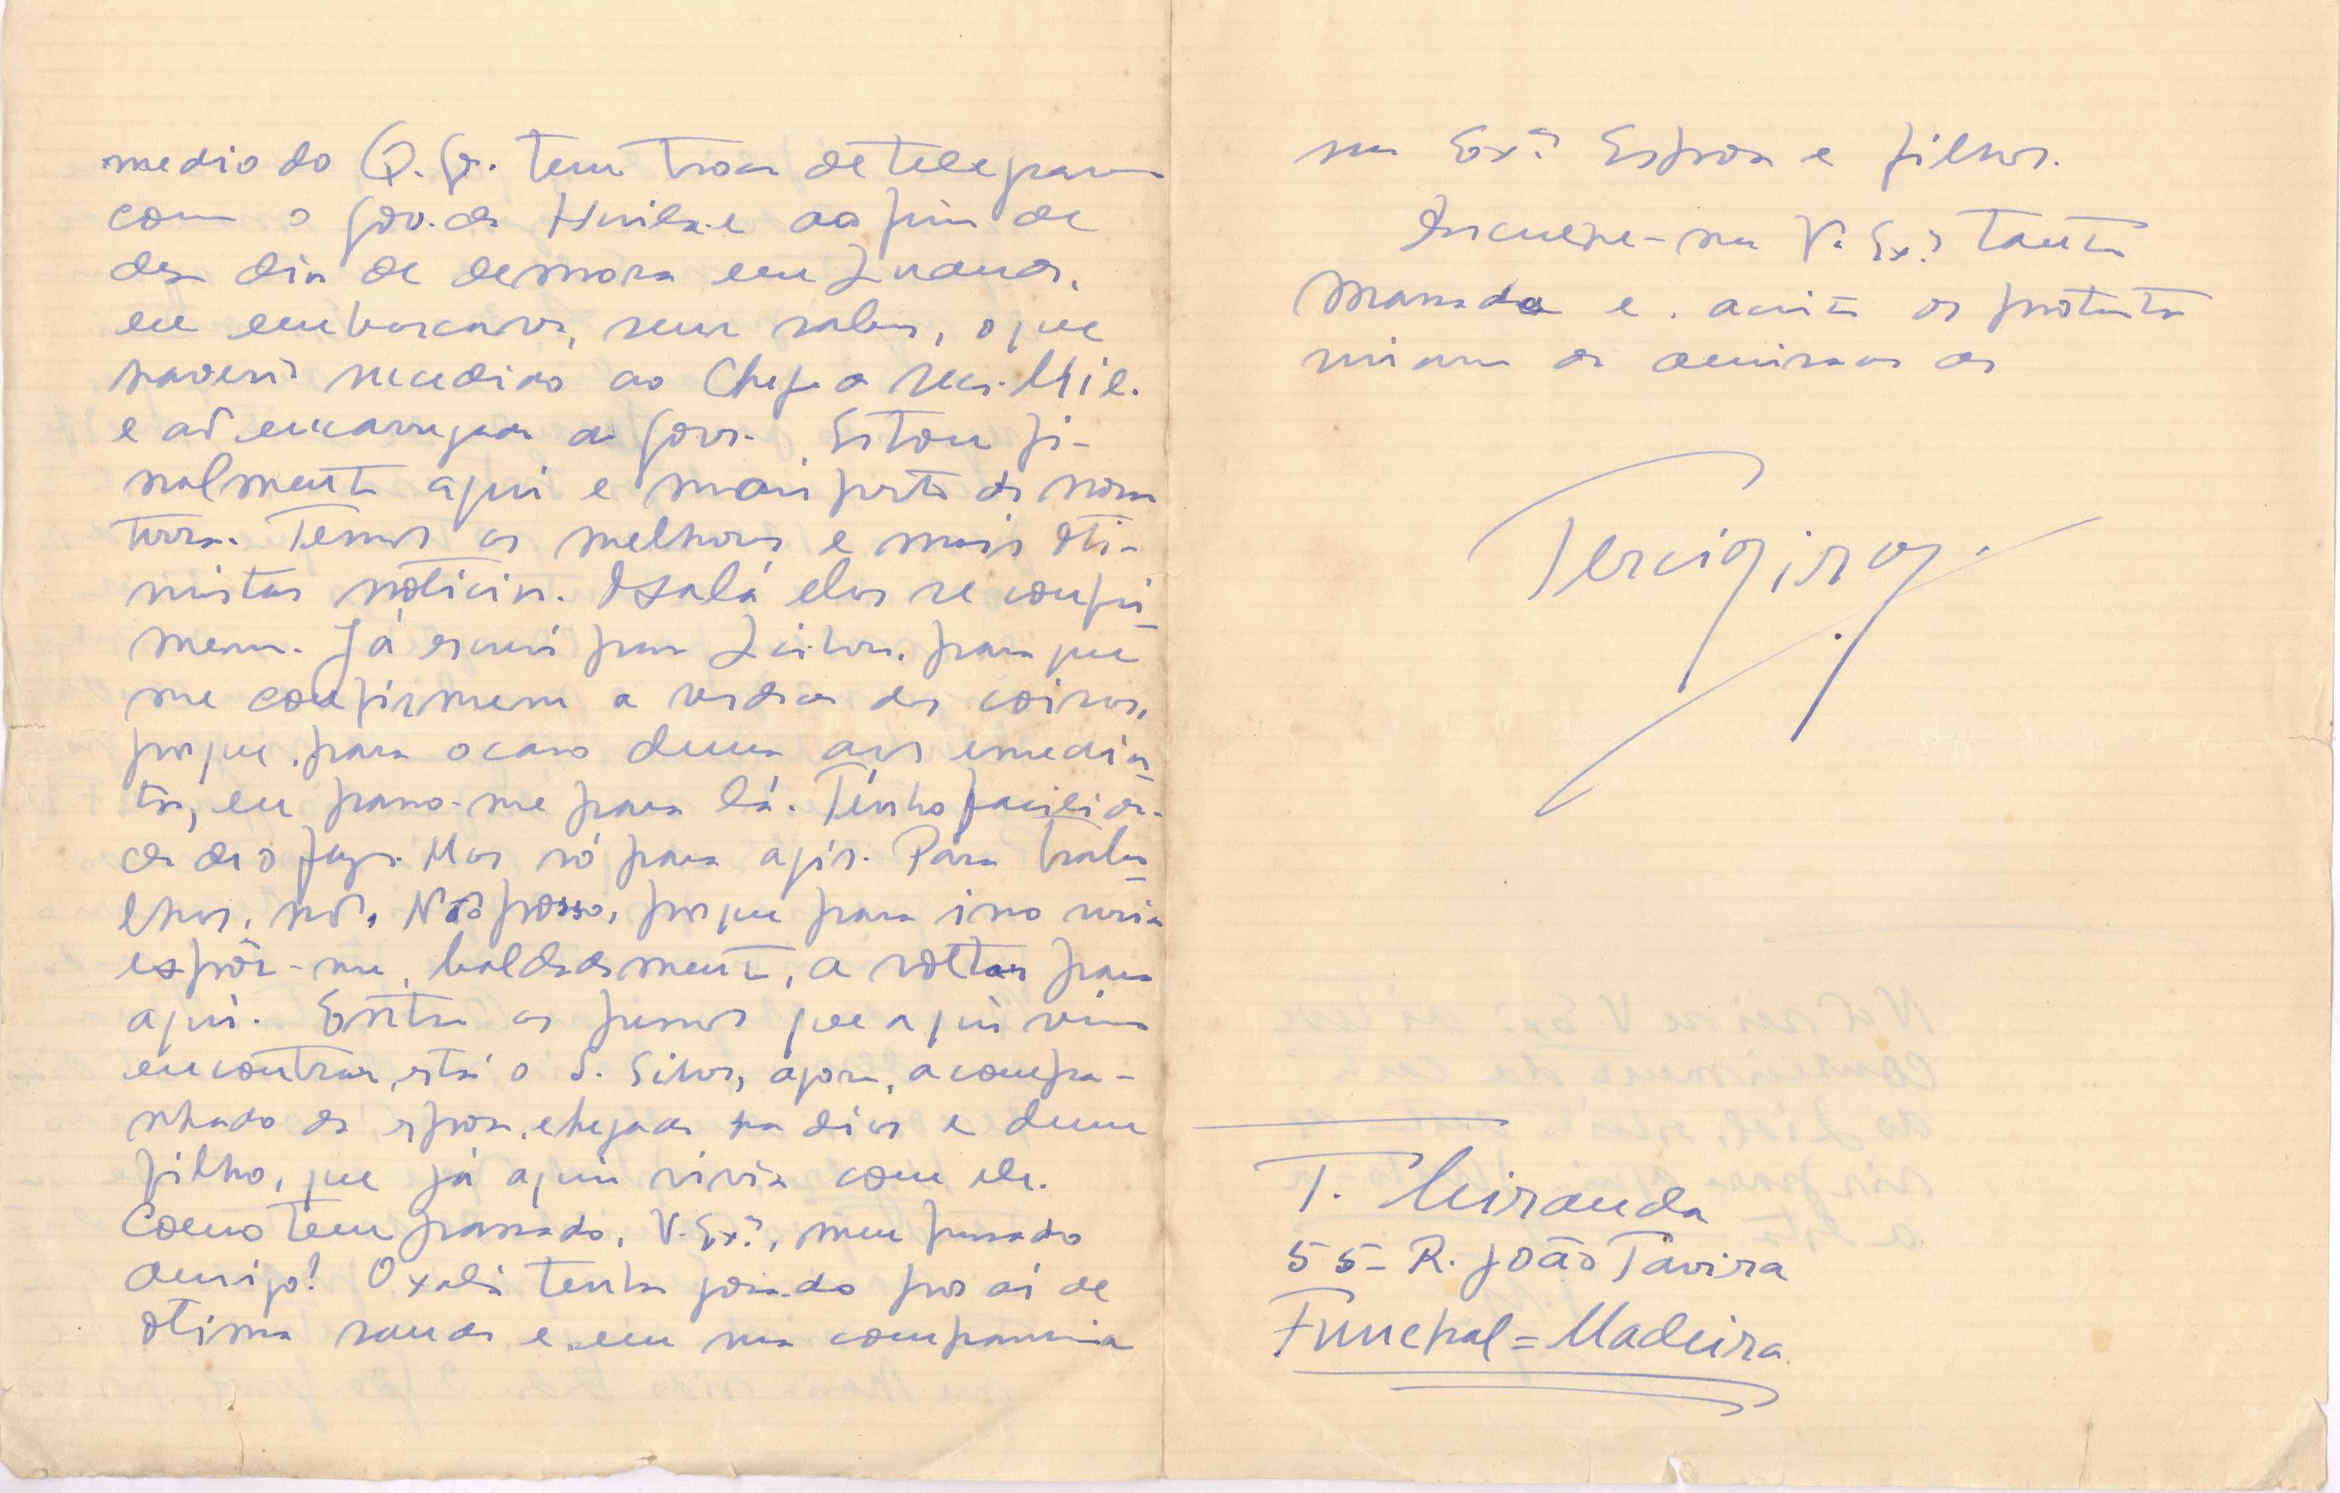 medio do Q. G. tem troca de telegramas
com o Gov. da Huila e ao fim de
dia de demora em Luanda,
eu embarcava, sem saber, o que
haveria sucedido ao Chefe da Rec. Mil.
e ao encarregado do Gov. Estou fi-
nalmente aqui e mais perto da nossa
terra. Temos as melhores e mais oti-
mistas noticias. Oxalá elas se confir-
mem. Já escrevi para Lisboa, para que
me confirmem a verdade das coisas,
porque, para o caso duma acção imedia-
ta, eu passo-me para lá. Tenho facilida-
de de o fazer. Mas só para agir. Para traba-
lhos, não. Não posso, porque para isso seria
expôr-me, baldadamente, a voltar para
aqui. Entre os presos que aqui vim
encontrar, está o S. Silva, agora, acompa-
nhado da esposa, chegada ha dias e dum
filho, que já aqui vivia com ele.
Como tem passado, V. Exª, meu presado
amigo? Oxalá tenha gosado por aí de
otima saude e em sua companhia
sua Exª Esposa e filhos.
Desculpe-me V. Exª tanta
massada e aceite os protestos
da amisade do
T. Miranda
55- R. João Tavira
Funchal = Madeira